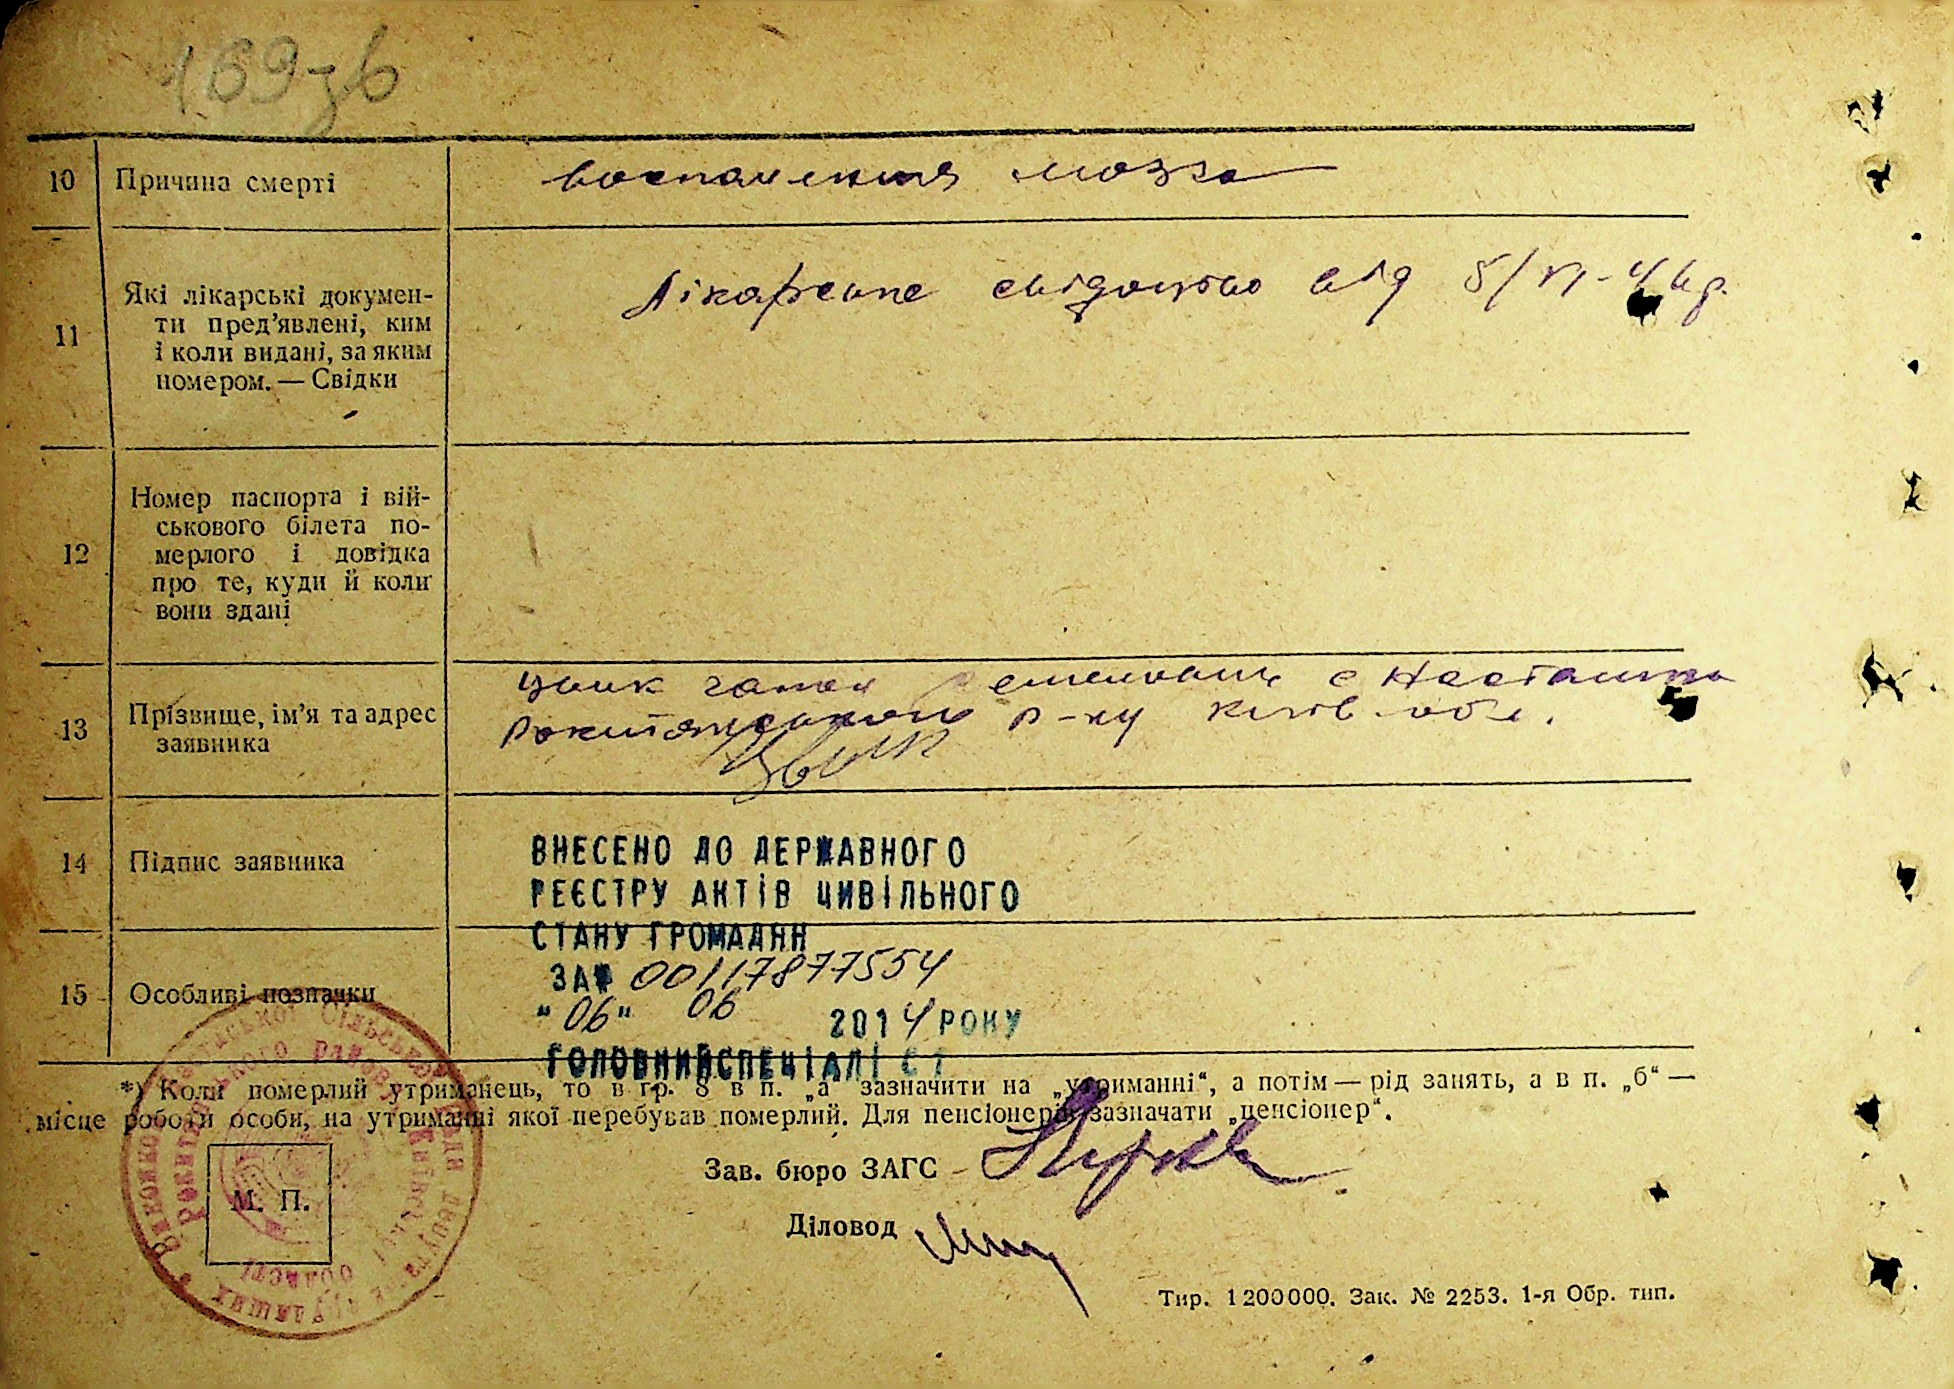 169зв
10 Причина смерті
воспаления мозга
11 Які лікарські докумен-
ти пред’явлені, ким
і коли видані, за яким
номером. — Свідки
Лікарське свідоцтво від 5/VI-
12 Номер паспорта і вій-
ськового білета по-
мерлого і довідка
про те, куди й коли
вони здані
13 Прізвище, ім’я та адрес
заявника
с Насташка
Рокитянського р-ну Київ обл.
14 Підпис заявника
ВНЕСЕНО ДО ДЕРЖАВНОГО
РЕЄСТРУ АКТІВ ЦИВІЛЬНОГО
СТАНУ ГРОМАДЯН
ЗА № 00117877554
15 Особливі позначки
"06" 06 2014 РОКУ
ГОЛОВНИЙ СПЕЦІАЛІСТ
*) Коли померлий утриманець, то в гр. 8 в п. „а“ зазначити на „утриманні“, а потім — рід занять, а в п. „б“ —
місце роботи особи, на утриманні якої перебував померлий. Для пенсіонерів зазначати „пенсіонер“.
Зав. бюро ЗАГС
М. П.
Діловод
Тир. 1200000. Зак. № 2253. 1-я Обр. тип.